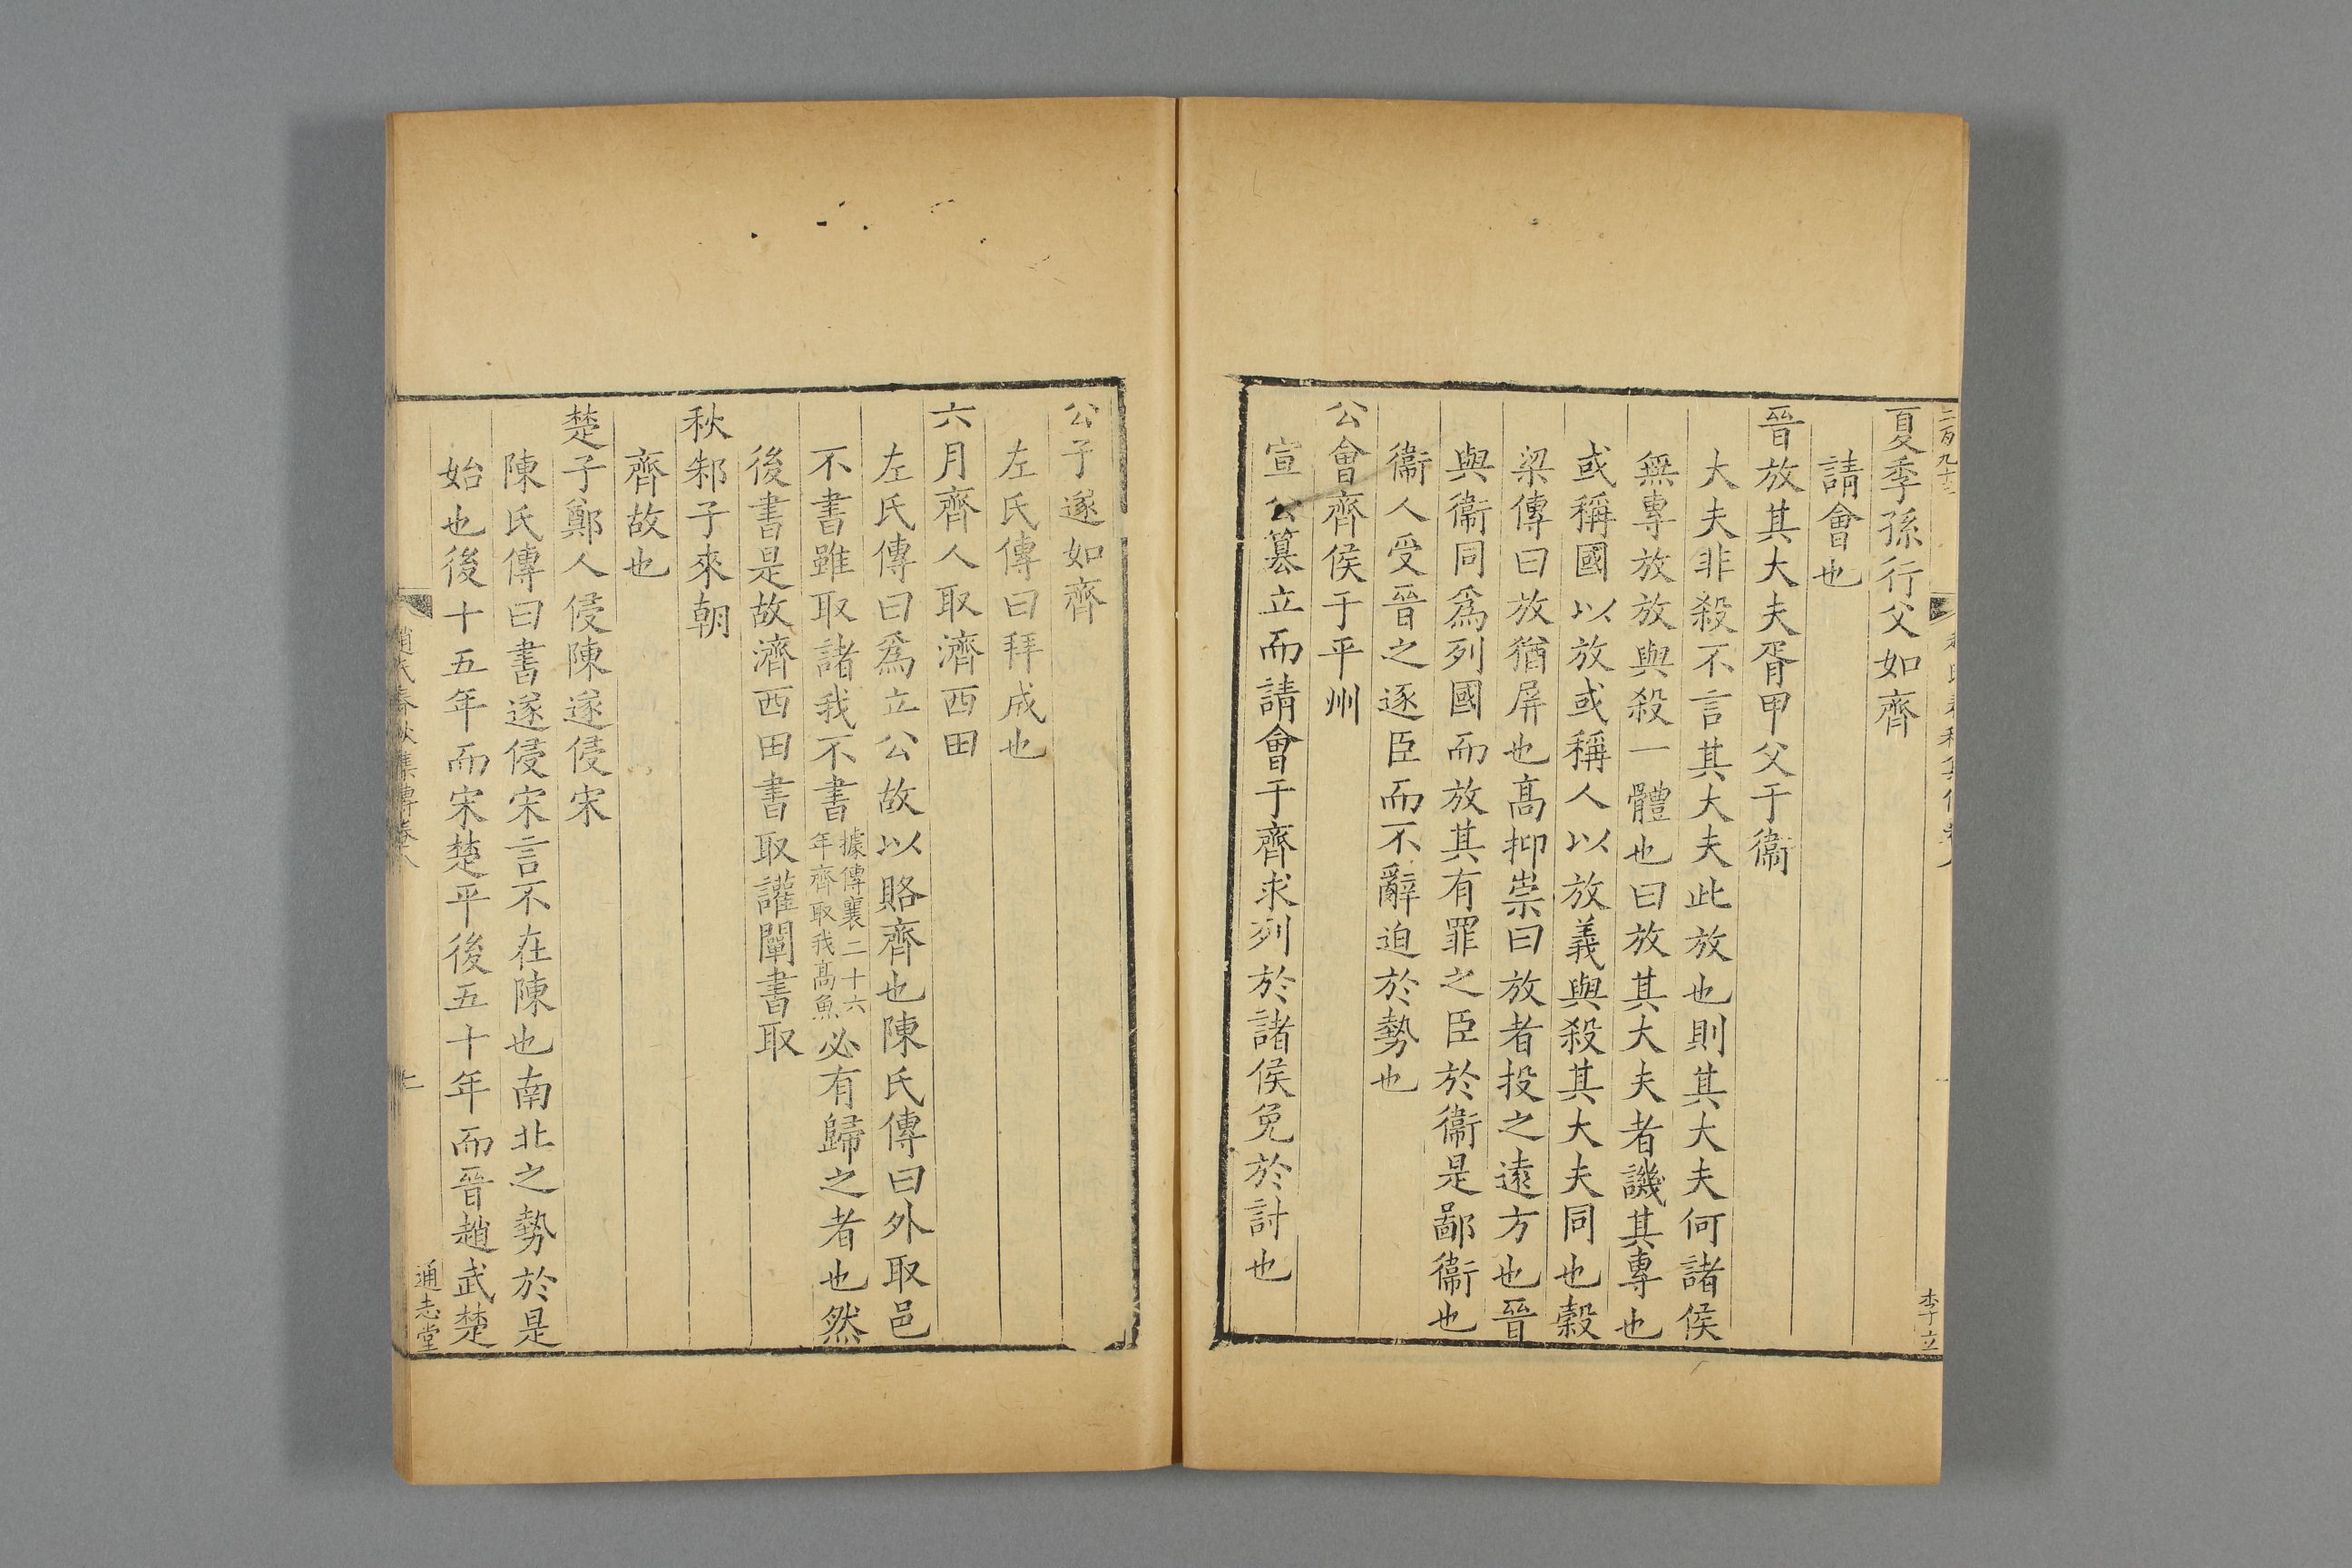 夏季孫行父如齊
請會也
晉放其大夫胥甲父于衞
大夫非殺不言其大夫此放也則其大夫何諸侯
無專放放與殺一體也曰放其大夫者譏其專也
或稱國以放或稱人以放義與殺其大夫同也糓
梁傳曰放猶屏也高抑崇曰放者投之遠方也晉
與衞同爲列國而放其有罪之臣於衞是鄙衞也
衞人受晉之逐臣而不辭迫於勢也
公會齊侯于平州
宣公篡立而請會于齊求列於諸侯免於討也
李立
公子遂如齊
左氏傳曰拜成也
六月齊人取濟西田
左氏傳曰爲立公故以賂齊也陳氏傳曰外取邑
不書雖取諸我不書據傳襄二十六年齊取我高魚必有歸之者也然
後書是故濟西田書取讙闡書取
秋邾子來朝
齊故也
楚子鄭人侵陳遂侵宋
陳氏傳曰書遂侵宋言不在陳也南北之勢於是
始也後十五年而宋楚平後五十年而晉趙武楚
趙氏春秋集傳卷八
二
通志堂